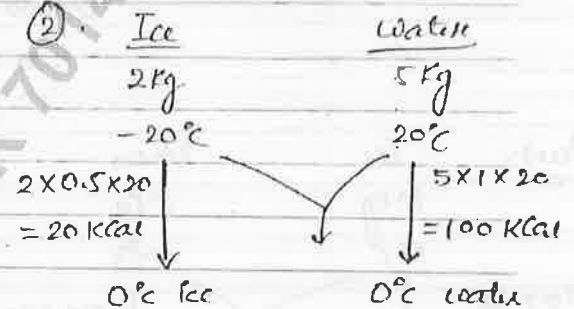 ②. Ice water
2 Kg 5 Kg
-20°C 20°C
2×0.5×20 5×1×20
= 20 KCal =100 KCal
0°C Ice 0°C water